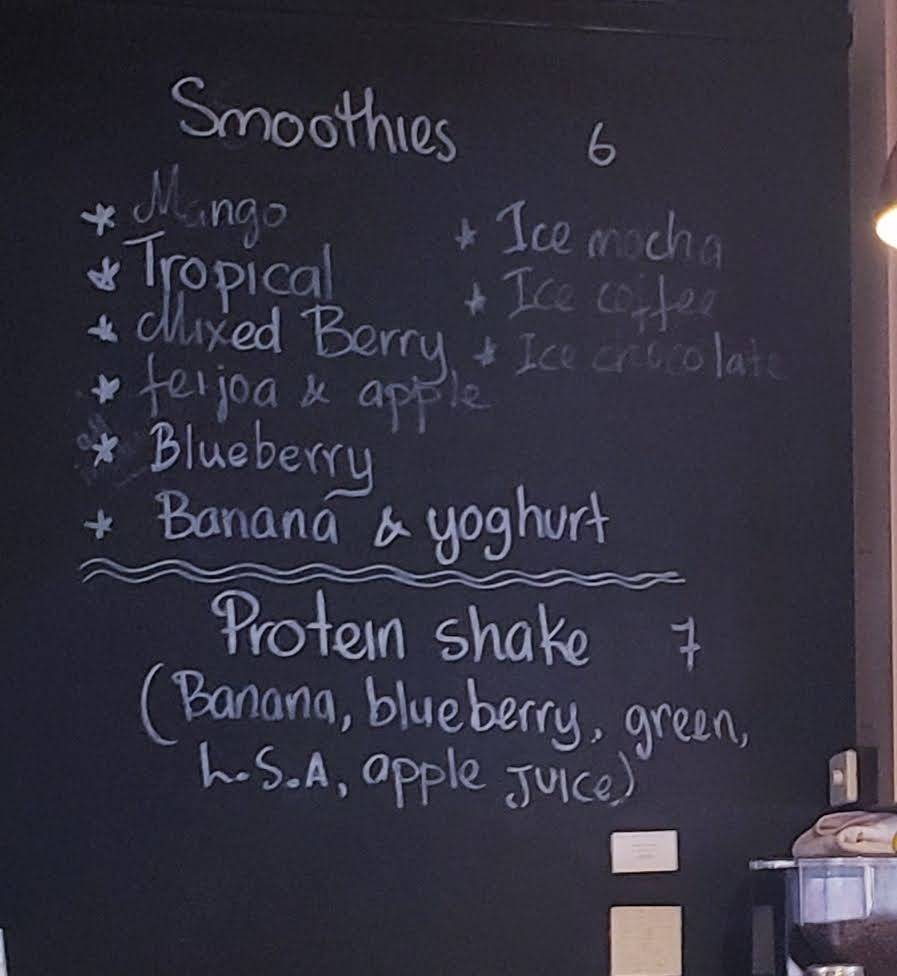 Smoothies 6
* Mango
* Tropical
* Mixed Berry
* feijoa & apple
* Blueberry
* Banana & yoghurt
* Ice mocha
* Ice coffee
* Ice chocolate
Protein shake 7
(Banana, blueberry, green,
L.S.A, apple juice)